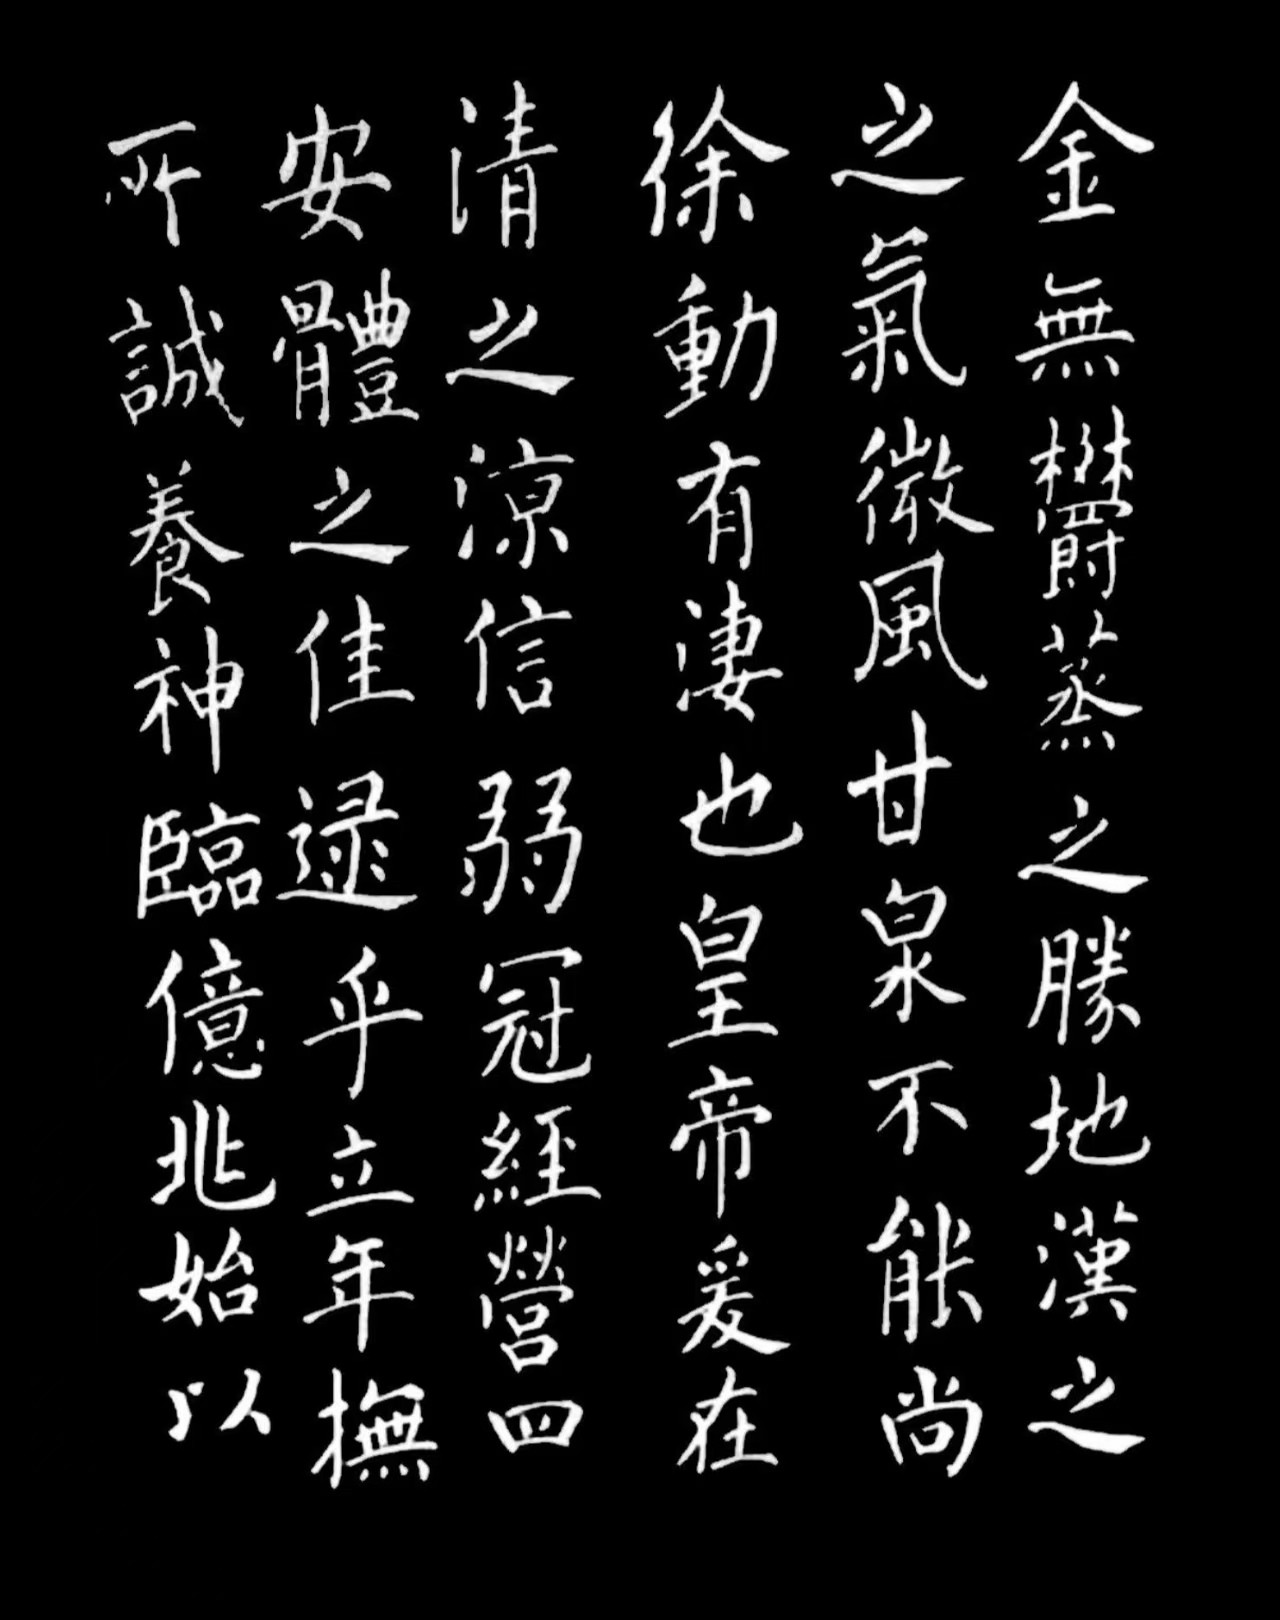 金無欝蒸之勝地漢之
之氣微風甘泉不能尚
徐動有淒也皇帝爰在
清之涼信弱冠經營四
安體之佳逯乎立年撫
所誠養神臨億兆始以